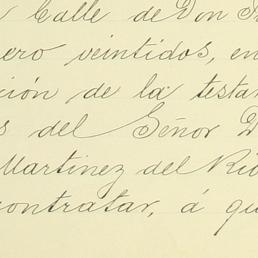 Calle de Don
ero veintidos, en
ción de la testa
s del Señor D
Martinez del Rio
contratar, á qu